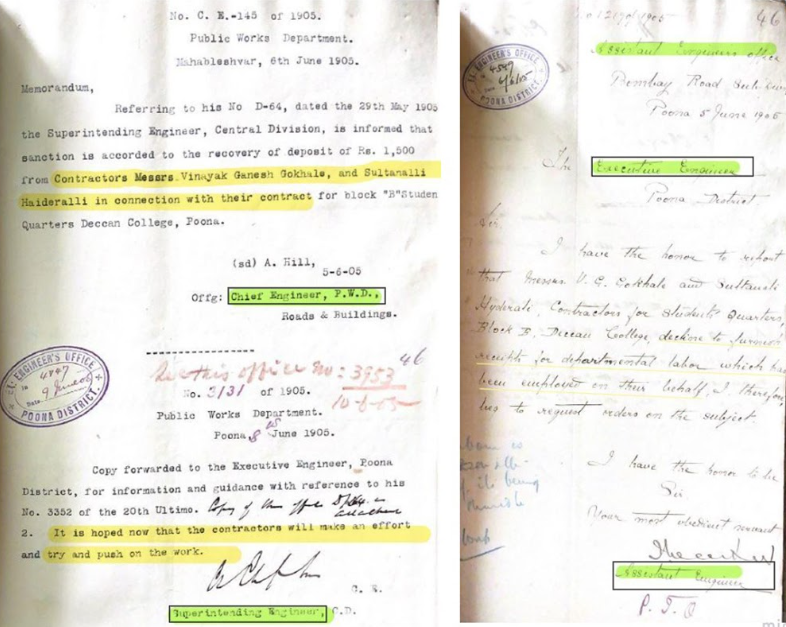 No. C. E.-145 of 1905.
Public Works Department.
Mahableshvar, 6th June 1905.
Memorandum,
Referring to his No D-64, dated the 29th May 1905
the Superintending Engineer, Central Division, is informed that
sanction is accorded to the recovery of deposit of Rs. 1,500
from Contractors Messrs. Vinayak Ganesh Gokhale, and Sultanalli
Haideralli in connection with their contract for block "B"Studen
Quarters Deccan College, Poona.
(sd) A. Hill,
5-6-05
Offg: Chief Engineer, P.W.D.,
Roads & Buildings.
EX. ENGINEER'S OFFICE
4847
9 June 05
POONA DISTRICT
46
this office No: 3953
10-6-05
No. 3131 of 1905.
Public Works Department.
Poona 8th June 1905.
Copy forwarded to the Executive Engineer, Poona
District, for information and guidance with reference to his
No. 3352 of the 20th Ultimo. Copy of this office
2. It is hoped now that the contractors will make an effort
and try and push on the work.
C. E.
Superintending Engineer, C.D.
46
of 1905
Assistant Engineers office
Bombay Road Sub
Poona 5 June 1905
EX. ENGINEER'S OFFICE
POONA DISTRICT
The Executive Engineer
Poona District
Sir,
I have the honor to report
that Messrs V. G. Gokhale and Sultanali
Hyderali, Contractors for Students Quarters,
Block B, Deccan College, decline to furnish
receipts for departmental labor which has
been employed on their behalf, I therefore
beg to request orders on the subject
I have the honor to be
Sir
Your most obedient servant
Assistant Engineer
P. T. O